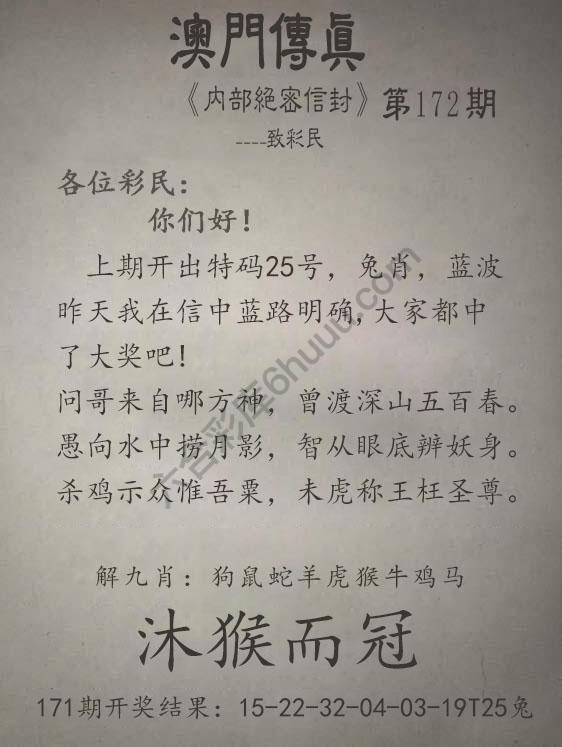 澳門傳眞
《内部絕密信封》第172期
----致彩民
各位彩民：
你们好！
上期开出特码25号，兔肖，蓝波
昨天我在信中蓝路明确,大家都中
了大奖吧！
问哥来自哪方神，曾渡深山五百春。
愚向水中捞月影，智从眼底辨妖身。
杀鸡示众惟吾粟，未虎称王枉圣尊。
六合彩库6huuu.com
解九肖：狗鼠蛇羊虎猴牛鸡马
沐猴而冠
171期开奖结果：15-22-32-04-03-19T25兔